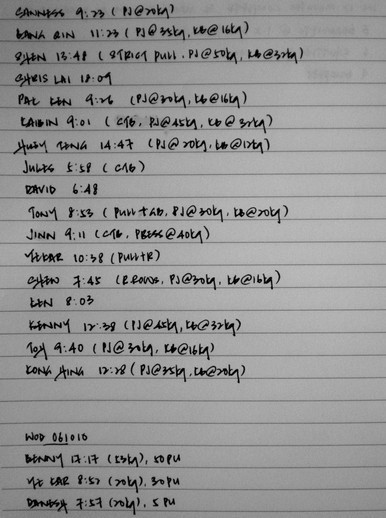 SANNESS 9:23 (PJ@20kg)
BANG QIN 11:23 (PJ@35kg, KB@16kg)
SHEN 13:48 (STRICT PULL, PJ@50kg, KB@32kg)
CHRIS LAI 18:09
PAK KEN 9:26 (PJ@30kg, KB@16kg)
KAIBIN 9:01 (CTB, PJ@45kg, KB@32kg)
HUEY TENG 14:47 (PJ@20kg, KB@12kg)
JULES 5:58 (CTB)
DAVID 6:48
TONY 8:53 (PULL+AB, PJ@30kg, KB@20kg)
JINN 9:11 (CTB, PRESS@40kg)
YE KAR 10:38 (PULL+R)
CHEN 7:45 (R ROWS, PJ@30kg, KB@16kg)
KEN 8:03
KENNY 12:38 (PJ@45kg, KB@32kg)
TOY 9:40 (PJ@30kg, KB@16kg)
KONG HING 12:28 (PJ@35kg, KB@20kg)
WOD 061010
BENNY 17:17 (53kg), 50PU
YE KAR 8:52 (20kg), 30PU
DANESH 7:57 (20kg), 5PU